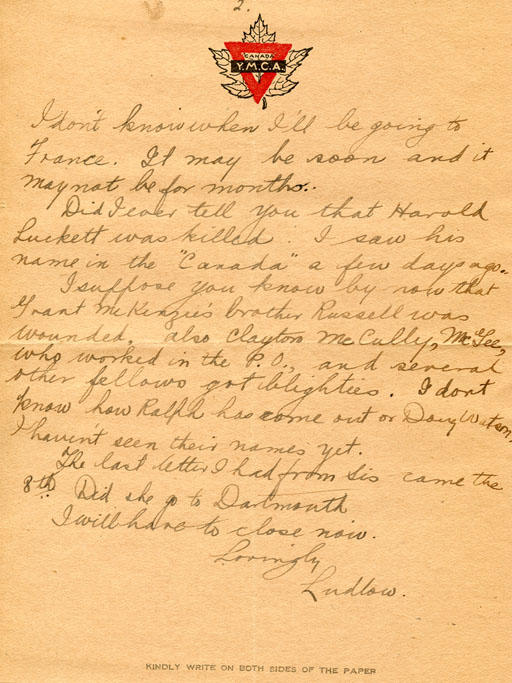 2.
CANADA
Y.M.C.A.
I don't know when I'll be going to
France. It may be soon and it
may not be for months.
Did I ever tell you that Harold
Luckett was killed. I saw his
name in the "Canada" a few days ago.
I suppose you know by now that
Grant McKenzie's brother Russell was
wounded, also Clayton McCully, McGee,
who worked in the P.O., and several
other fellows got blighties. I dont
know how Ralph has come out or Doug Watson,
I haven't seen their names yet.
The last letter I had from Sis came the
8th Did she go to Dartmouth
I will have to close now.
Lovingly
Ludlow.
KINDLY WRITE ON BOTH SIDES OF THE PAPER